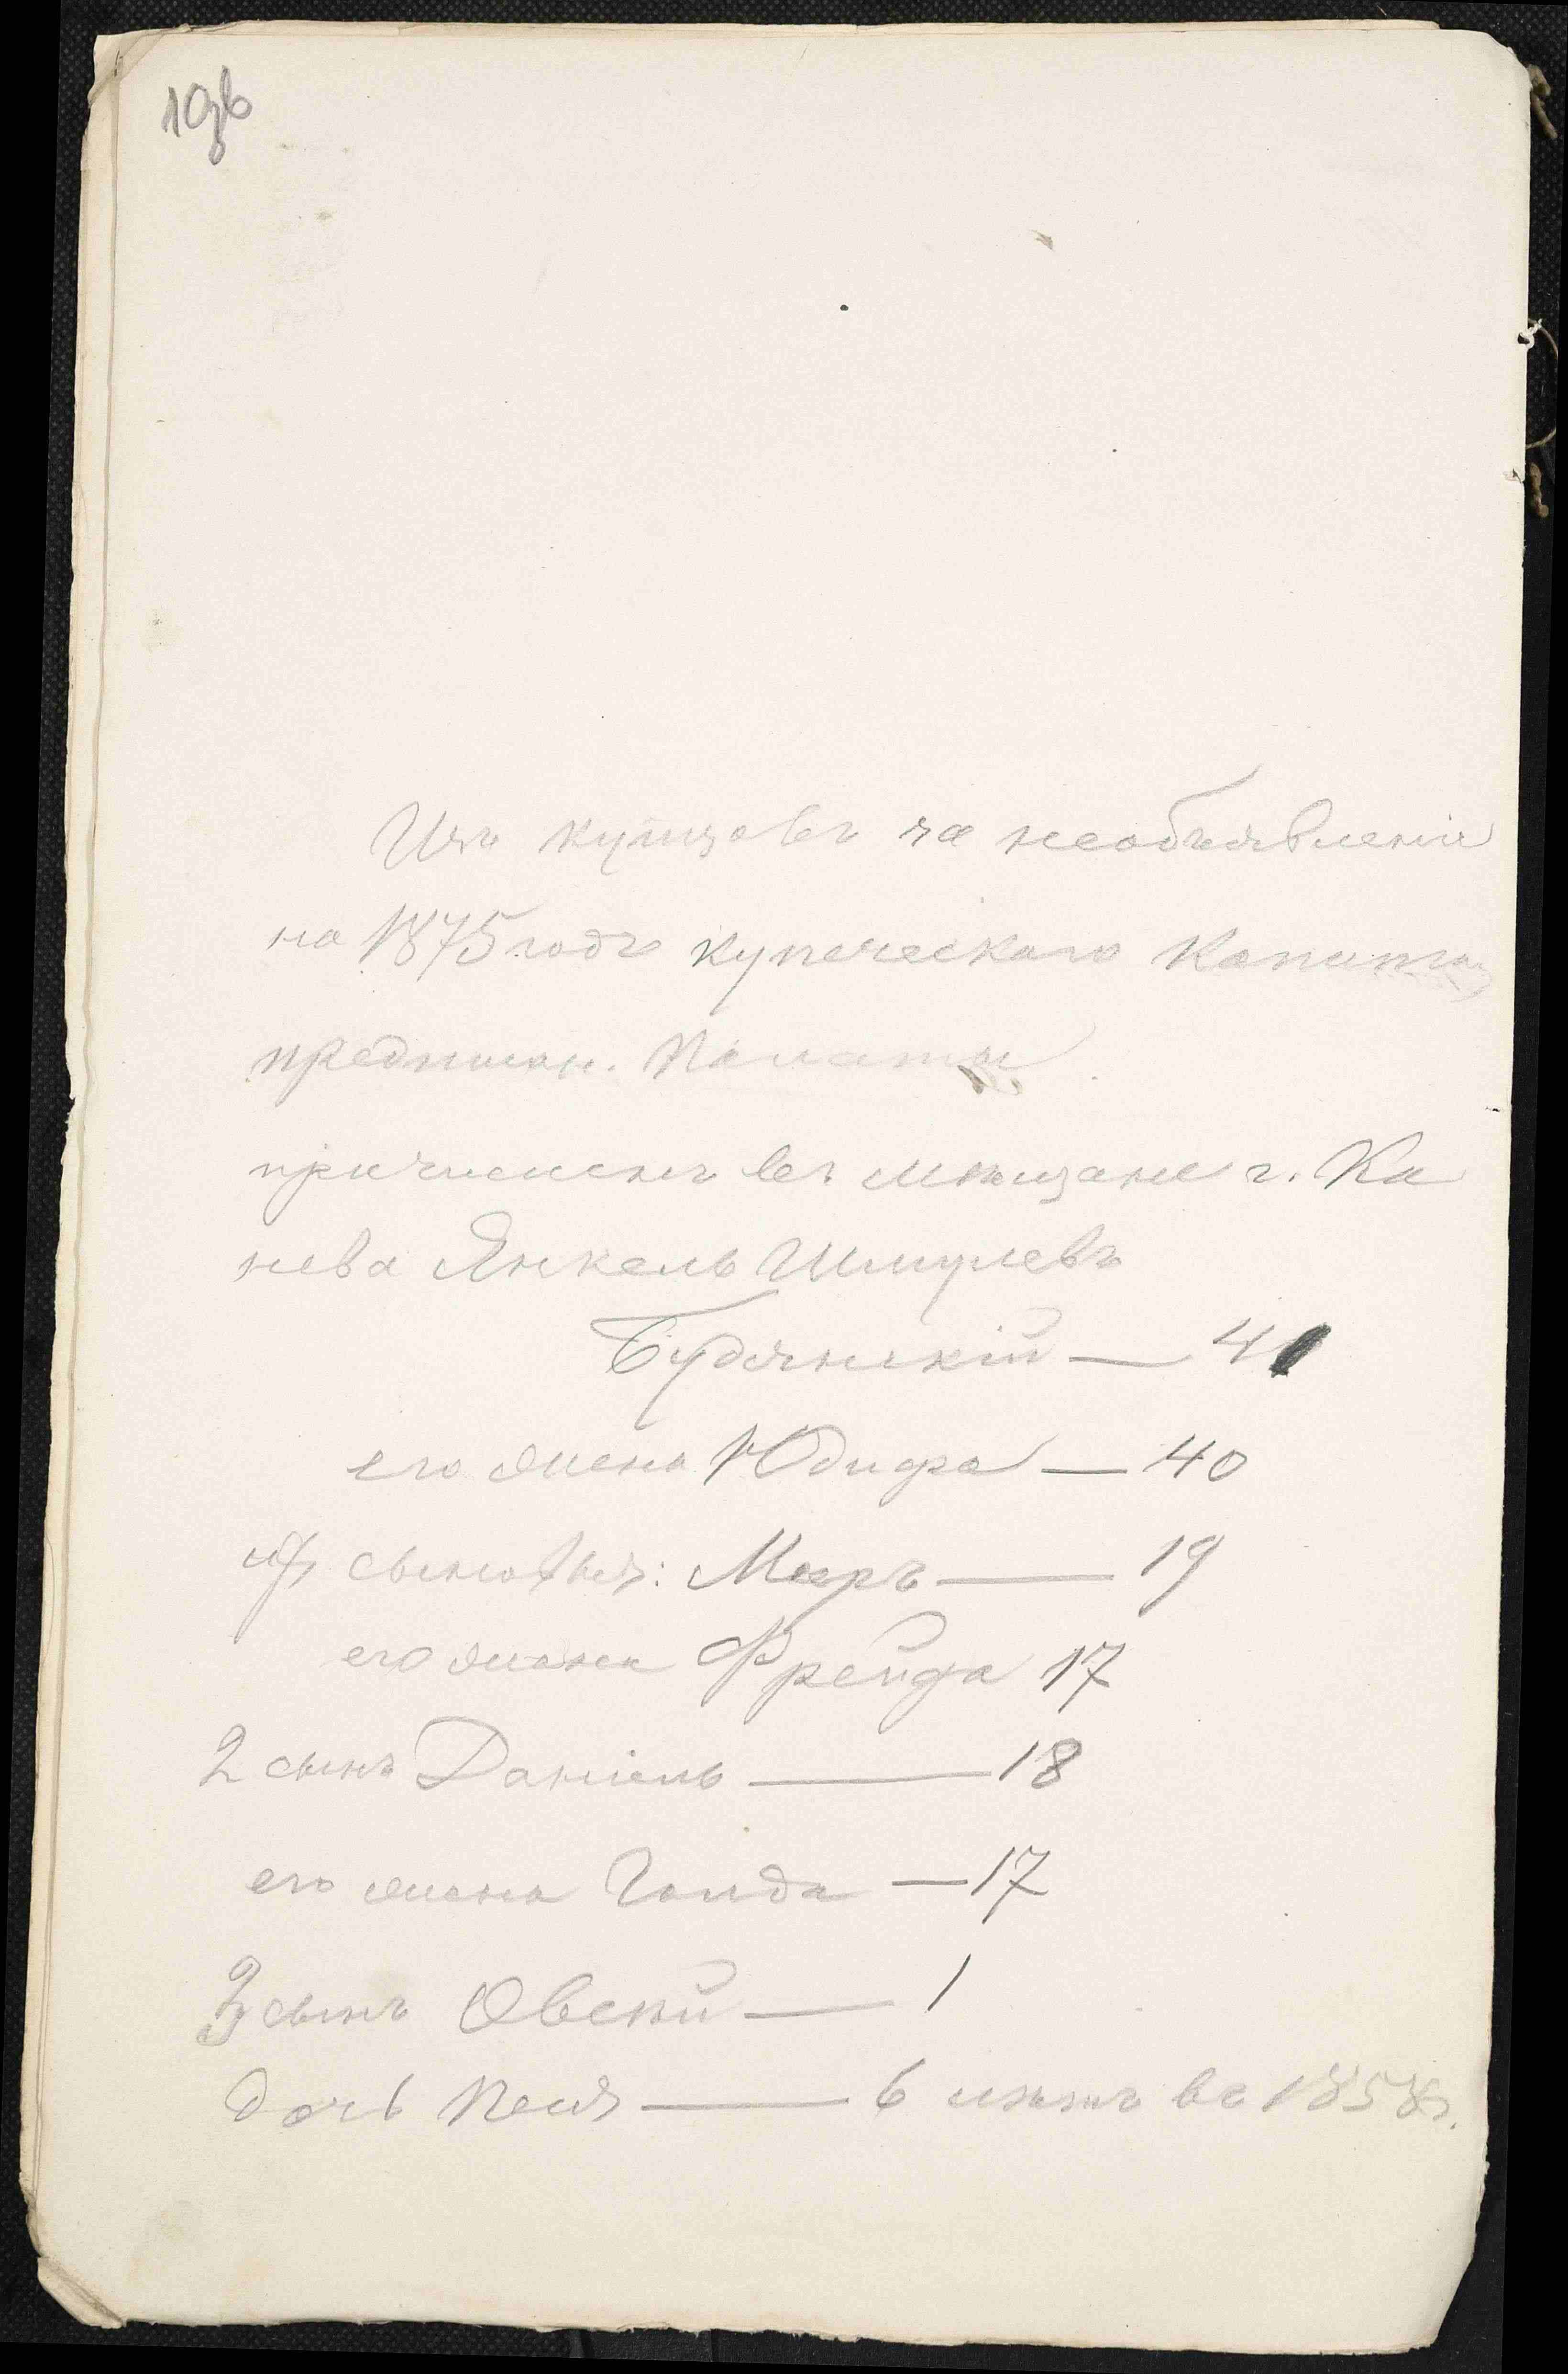 19в
Изъ купцовъ за необъявленіе
на 1875 годъ купеческаго капитал
предписан. Палаты
причисленъ въ мѣщане г. Ка
нева Янкель Шмулевъ
Будянскій — 41
его жена Юдифа — 40
их сыновья: Мееръ — 19
его жена Фрейда 17
2 сынъ Даніель — 18
его жена Голда — 17
3 сынъ Овсей — 1
дочь Песя — 6 лѣтъ въ 1858 г.